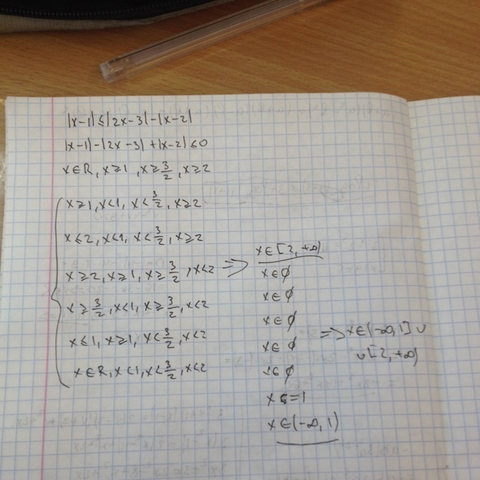 |x-1| ≤ |2x-3| - |x-2|
|x-1| - |2x-3| + |x-2| ≤ 0
x∈R, x≥1, x≥3/2, x≥2
x≥1, x<1, x<3/2, x≥2
x≤2, x<1, x<3/2, x≥2
x≥2, x≥1, x≥3/2, x<2 =>
x≥3/2, x<1, x≥3/2, x<2
x≤1, x≥1, x<3/2, x<2
x∈R, x<1, x<3/2, x<2
x∈[2,+∞)
x∈∅
x∈∅
x∈∅
x∈∅
x∈∅
x=1
x∈(-∞,1)
=> x∈(-∞,1]∪
∪[2,+∞)